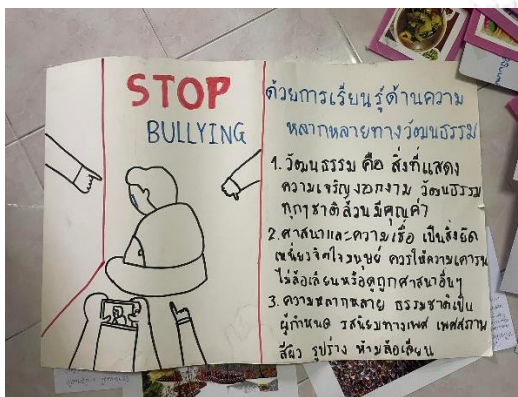 STOP
BULLYING
ด้วยการเรียนรู้ด้านความ
หลากหลายทางวัฒนธรรม
1. วัฒนธรรม คือ สิ่งที่แสดง
ความเจริญงอกงาม วัฒนธรรม
ทุกๆชาติล้วนมีคุณค่า
2. ศาสนาและความเชื่อ เป็นสิ่งยึด
เหนี่ยวจิตใจมนุษย์ ควรให้ความเคารพ
ไม่ล้อเลียนหรือดูถูกศาสนาอื่นๆ
3. ความหลากหลาย ธรรมชาติเป็น
ผู้กำหนด รสนิยมทางเพศ เพศสภาพ
สีผิว รูปร่าง ห้ามล้อเลียน